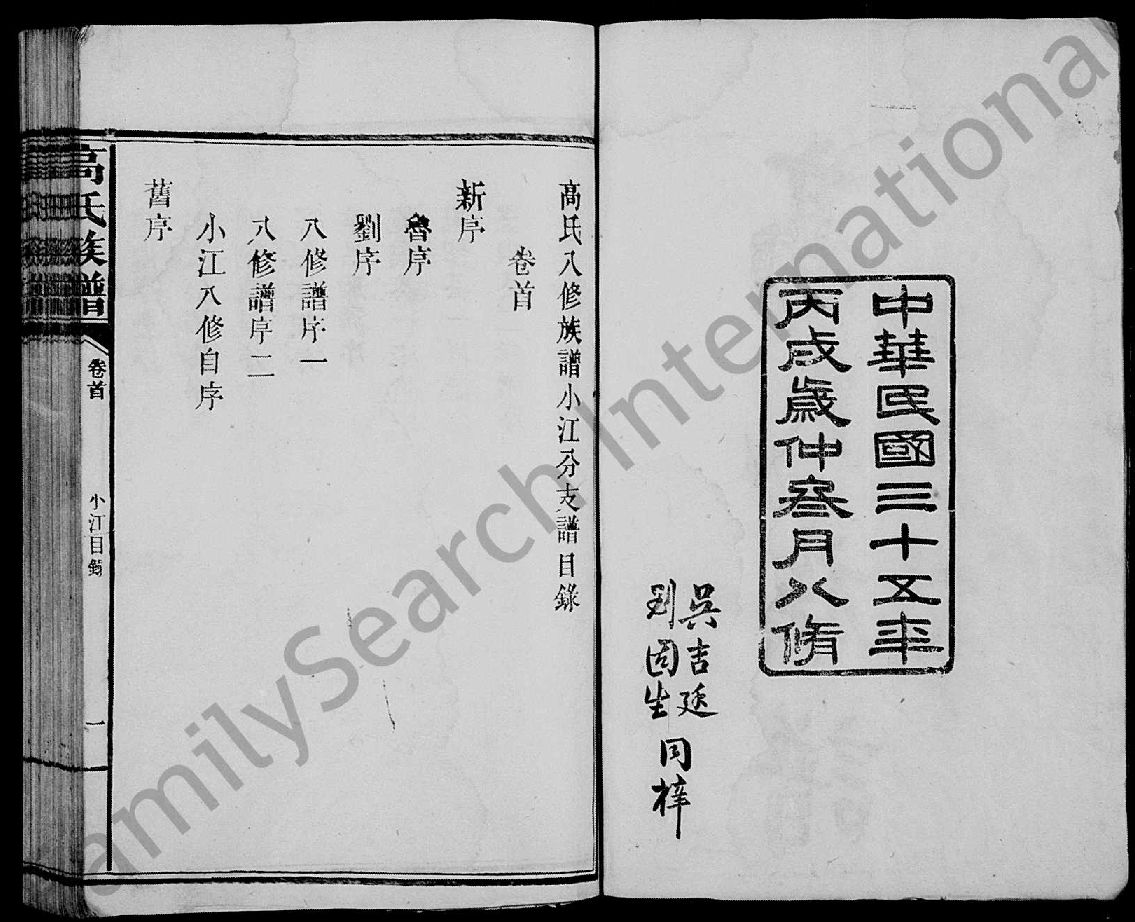 中華民國三十五年
丙戌歲仲叁月八脩
吳吉廷
刘固生
同梓
高氏八修族譜小江分支譜目錄
卷首
新序
魯序
劉序
八修譜序一
八修譜序二
小江八修自序
舊序
高氏族譜
卷首
小江目錄
一
FamilySearch International